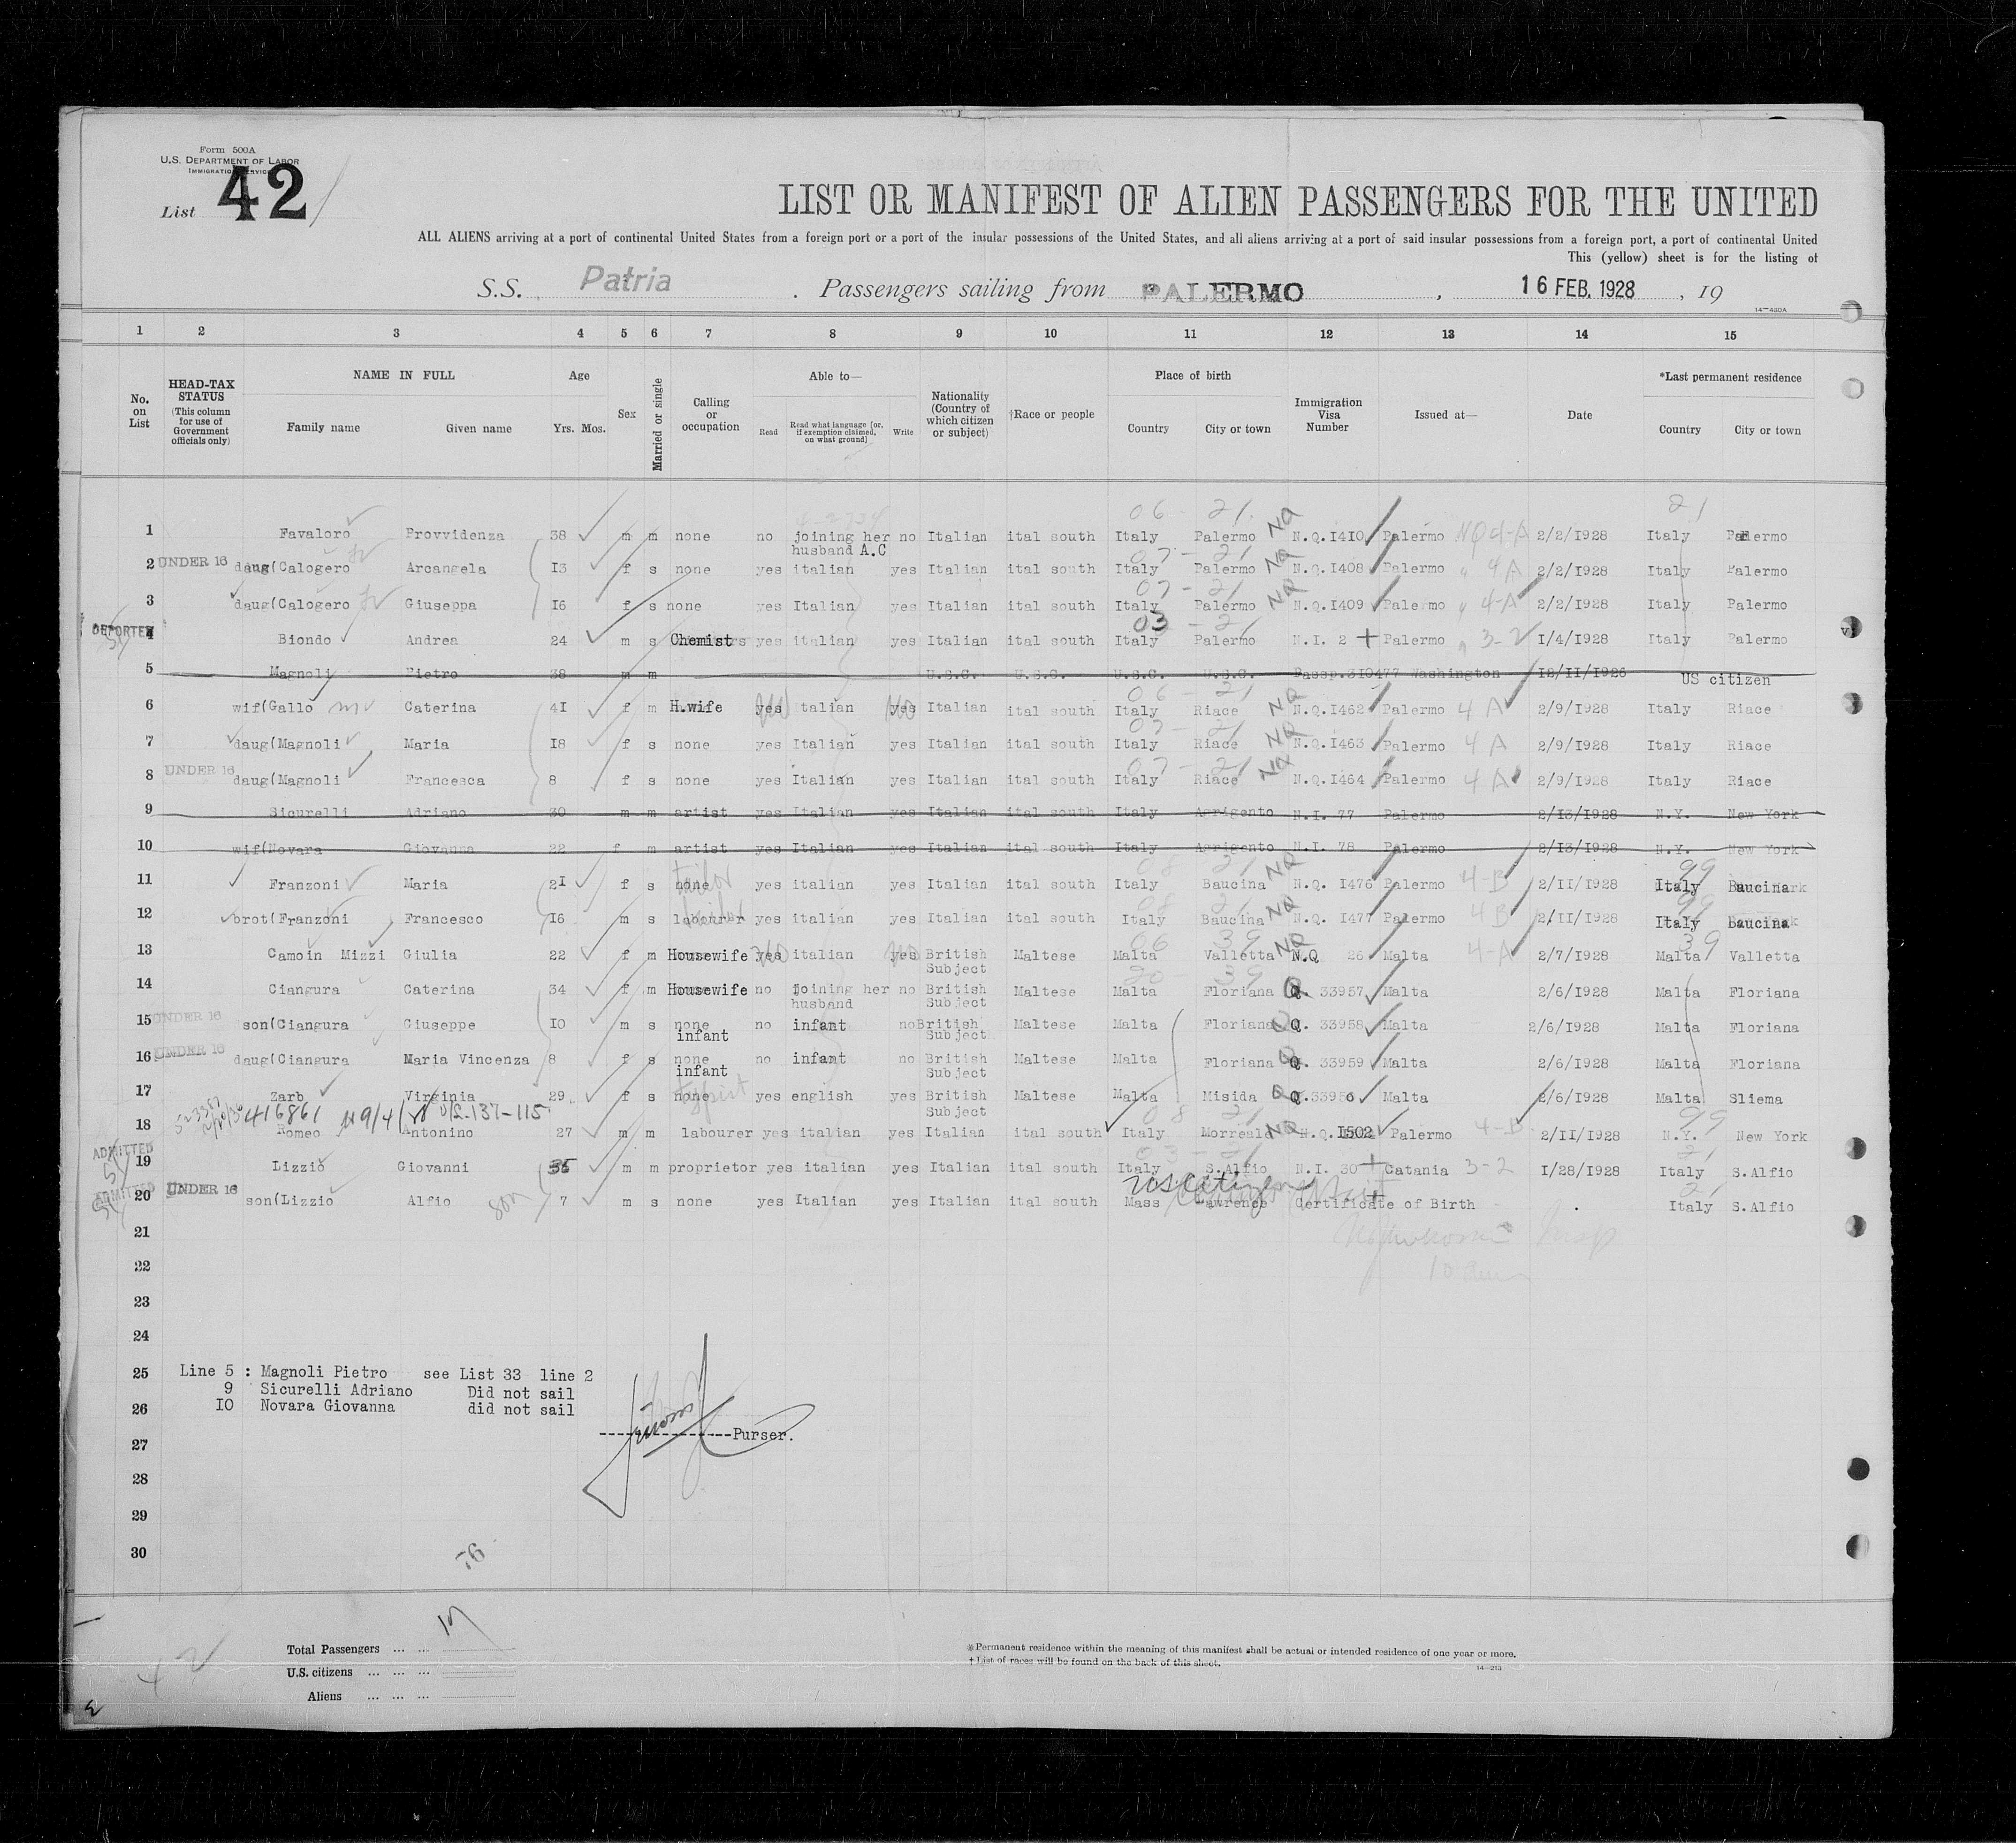 Form 500A
U.S. DEPARTMENT OF LABOR
IMMIGRATION SERVICE
List 42
LIST OR MANIFEST OF ALIEN PASSENGERS FOR THE UNITED
ALL ALIENS arriving at a port of continental United States from a foreign port or a port of the insular possessions of the United States, and all aliens arriving at a port of said insular possessions from a foreign port, a port of continental United
This (yellow) sheet is for the listing of
S.S. Patria . Passengers sailing from PALERMO , 16 FEB. 1928 , 19
14—430A
1 2 3 4 5 6 7 8 9 10 11 12 13 14 15
No. on List HEAD-TAX STATUS (This column for use of Government officials only) NAME IN FULL Family name Given name Age Yrs. Mos. Sex Married or single Calling or occupation Able to— Read Read what language [or, if exemption claimed, on what ground] Write Nationality (Country of which citizen or subject) †Race or people Place of birth Country City or town Immigration Visa Number Issued at— Date *Last permanent residence Country City or town
06 21 21
1 Favaloro Provvidenza 38 m m none no joining her husband A.C no Italian ital south Italy Palermo NQ N.Q.I4I0 Palermo NQ 4-A 2/2/I928 Italy Palermo
07 - 21
2 UNDER 16 daug(Calogero Arcangela I3 f s none yes italian yes Italian ital south Italy Palermo NQ N.Q.I408 Palermo " 4A 2/2/I928 Italy Palermo
07 - 21
3 daug(Calogero Giuseppa I6 f s none yes Italian yes Italian ital south Italy Palermo NQ N.Q.I409 Palermo " 4-A 2/2/I928 Italy Palermo
03 - 21
DEPORTED 4 Biondo Andrea 24 m s Chemist yes italian yes Italian ital south Italy Palermo N.I. 2 + Palermo " 3-2 I/4/I928 Italy Palermo
5 Magnoli Pietro 38 m m U.S.C. U.S.C. U.S.C. U.S.C. Passp.310477 Washington I2/II/I926 US citizen
06 - 21
6 wif(Gallo Caterina 4I f m H.wife yes no talian yes no Italian ital south Italy Riace NQ N.Q.I462 Palermo 4 A 2/9/I928 Italy Riace
07 - 21
7 daug(Magnoli Maria I8 f s none yes Italian yes Italian ital south Italy Riace NQ N.Q.I463 Palermo 4 A 2/9/I928 Italy Riace
07 - 21
8 UNDER 16 daug(Magnoli Francesca 8 f s none yes Italian yes Italian ital south Italy Riace NQ N.Q.I464 Palermo 4 A 2/9/I928 Italy Riace
9 Sicurelli Adriano 30 m m artist yes Italian yes Italian ital south Italy Agrigento N.I. 77 Palermo 2/I3/I928 N.Y. New York
10 wif(Novara Giovanna 22 f m artist yes Italian yes Italian ital south Italy Agrigento N.I. 78 Palermo 2/I3/I928 N.Y. New York
08 21 99
11 Franzoni Maria 2I f s none tailor yes italian yes Italian ital south Italy Baucina NQ N.Q. I476 Palermo 4-B 2/II/I928 Italy Baucina
08 21 99
12 brot(Franzoni Francesco I6 m s labourer yes italian yes Italian ital south Italy Baucina NQ N.Q. I477 Palermo 4B 2/II/I928 Italy Baucina
06 39 39
13 Camoin Mizzi Giulia 22 f m Housewife yes no italian yes no British Subject Maltese Malta Valletta NQ N.Q 26 Malta 4-A 2/7/I928 Malta Valletta
20 - 39
14 Ciangura Caterina 34 f m Housewife no joining her husband no British Subject Maltese Malta Floriana Q. 33957 Malta 2/6/I928 Malta Floriana
15 UNDER 16 son(Ciangura Giuseppe I0 m s none infant no infant no British Subject Maltese Malta Floriana Q Q. 33958 Malta 2/6/I928 Malta Floriana
16 UNDER 16 daug(Ciangura Maria Vincenza 8 f s none infant no infant no British Subject Maltese Malta Floriana Q. 33959 Malta 2/6/I928 Malta Floriana
17 Zarb Virginia 29 f s none typist yes english yes British Subject Maltese Malta Misida Q Q. Malta 2/6/I928 Malta Sliema
416861 012-137-115 08 21 99
18 Romeo Antonino 27 m m labourer yes italian yes Italian ital south Italy Morreale NQ N.Q. I502 Palermo 4-B 2/II/I928 N.Y. New York
03 - 21 21
ADMITTED 19 Lizzio Giovanni 35 m m proprietor yes italian yes Italian ital south Italy S.Alfio N.I. 30 + Catania 3-2 I/28/I928 Italy S.Alfio
US citizen 21
ADMITTED 20 UNDER 16 son(Lizzio Alfio son 7 m s none yes Italian yes Italian ital south Mass Lawrence Certificate of Birth Italy S.Alfio
21
22
23
24
25 Line 5 : Magnoli Pietro see List 33 line 2
9 Sicurelli Adriano Did not sail
26 I0 Novara Giovanna did not sail
27 Purser.
28
29
30
76
Total Passengers ... ... 17
U.S. citizens ... ... ...
Aliens ... ... ...
42
* Permanent residence within the meaning of this manifest shall be actual or intended residence of one year or more.
† List of races will be found on the back of this sheet.
14—213